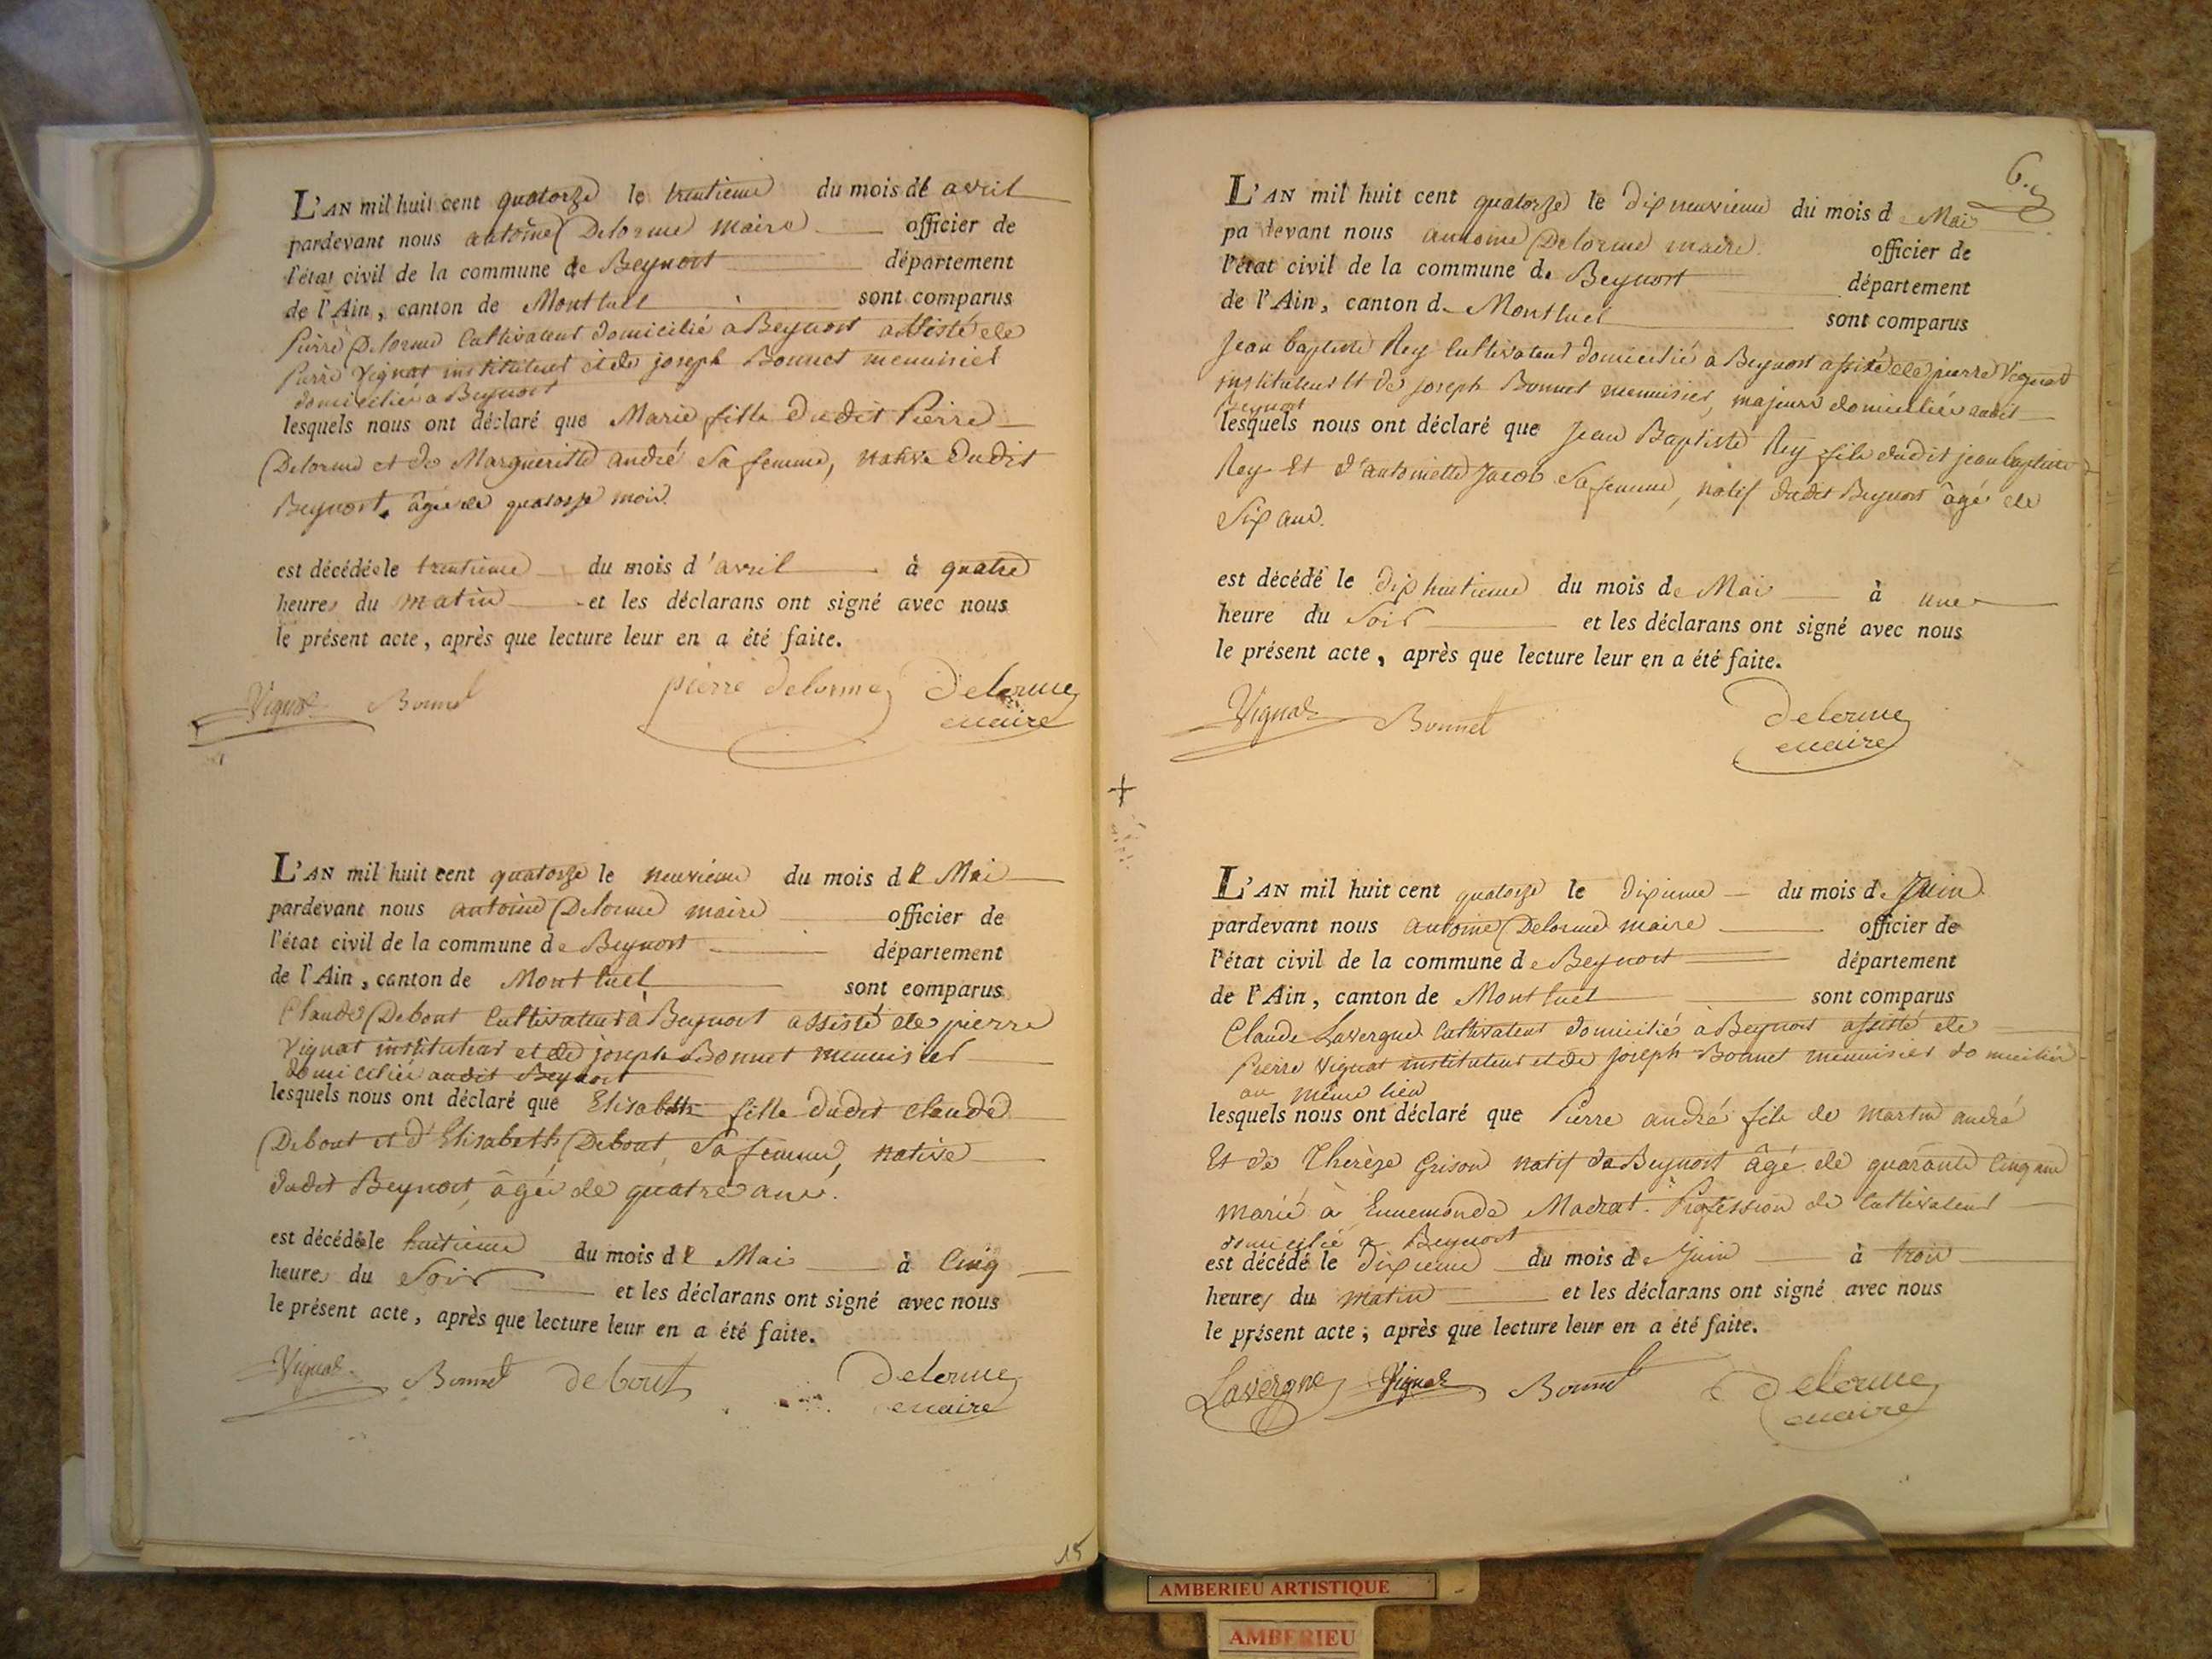 L'AN mil huit cent quatorze le trentieme du mois de avril
pardevant nous antoine Delorme maire officier de
l'état civil de la commune de Beynost département
de l'Ain, canton de Montluel sont comparus
Pierre Delorme Cultivateur domicilié à Beynost assisté de
Pierre Vignat instituteur et de joseph Bonnet menuisier
domiciliés a Beynost
lesquels nous ont déclaré que Marie fille dudit Pierre
Delorme et de Margueritte andré Sa femme, native dudit
Beynost, âgée de quatorze mois.
est décédée le trentieme du mois d'avril à quatre
heures du matin et les déclarans ont signé avec nous
le présent acte, après que lecture leur en a été faite.
Vignat Bonnet pierre delorme Delorme
maire
L'AN mil huit cent quatorze le neuvieme du mois de Mai
pardevant nous antoine Delorme maire officier de
l'état civil de la commune de Beynost département
de l'Ain, canton de Montluel sont comparus
Claude Debout Cultivateur à Beynost assisté de pierre
Vignat instituteur et de joseph Bonnet menuisier
domiciliés audit Beynost
lesquels nous ont déclaré que Elisabeth fille dudit claude
Debout et d'Elisabeth Debout, Sa femme, native
dudit Beynost, âgée de quatre ans.
est décédée le huitieme du mois de Mai à Cinq
heures du Soir et les déclarans ont signé avec nous
le présent acte, après que lecture leur en a été faite.
Vignat Bonnet debout Delorme
maire
15
6.
L'AN mil huit cent quatorze le dix neuvieme du mois de Mai
pardevant nous antoine Delorme maire officier de
l'état civil de la commune de Beynost département
de l'Ain, canton de Montluel sont comparus
Jean baptiste Rey Cultivateur domicilié à Beynost assisté de pierre Vignat
instituteur et de joseph Bonnet menuisier, majeurs domiciliés audit
Beynost
lesquels nous ont déclaré que Jean Baptiste Rey fils dudit jean baptiste
Rey Et d'antoinette Jacob Sa femme, natif dudit Beynost âgé de
Six ans.
est décédé le dix huitieme du mois de Mai à une
heure du Soir et les déclarans ont signé avec nous
le présent acte, après que lecture leur en a été faite.
Vignat Bonnet Delorme
maire
L'AN mil huit cent quatorze le dixieme du mois de Juin
pardevant nous antoine Delorme maire officier de
l'état civil de la commune de Beynost département
de l'Ain, canton de Montluel sont comparus
Claude Lavergne Cultivateur domicilié à Beynost assisté de
Pierre Vignat instituteur et de joseph Bonnet menuisier domiciliés
au même lieu
lesquels nous ont déclaré que Pierre andré fils de martin andré
Et de Thérèze Grison natif de Beynost âgé de quarante Cinq ans
marié à Ennemonde Madrat. Profession de Cultivateur
domicilié a Beynost
est décédé le dixieme du mois de Juin à trois
heures du matin et les déclarans ont signé avec nous
le présent acte; après que lecture leur en a été faite.
Lavergne Vignat Bonnet Delorme
maire
AMBERIEU ARTISTIQUE
AMBERIEU